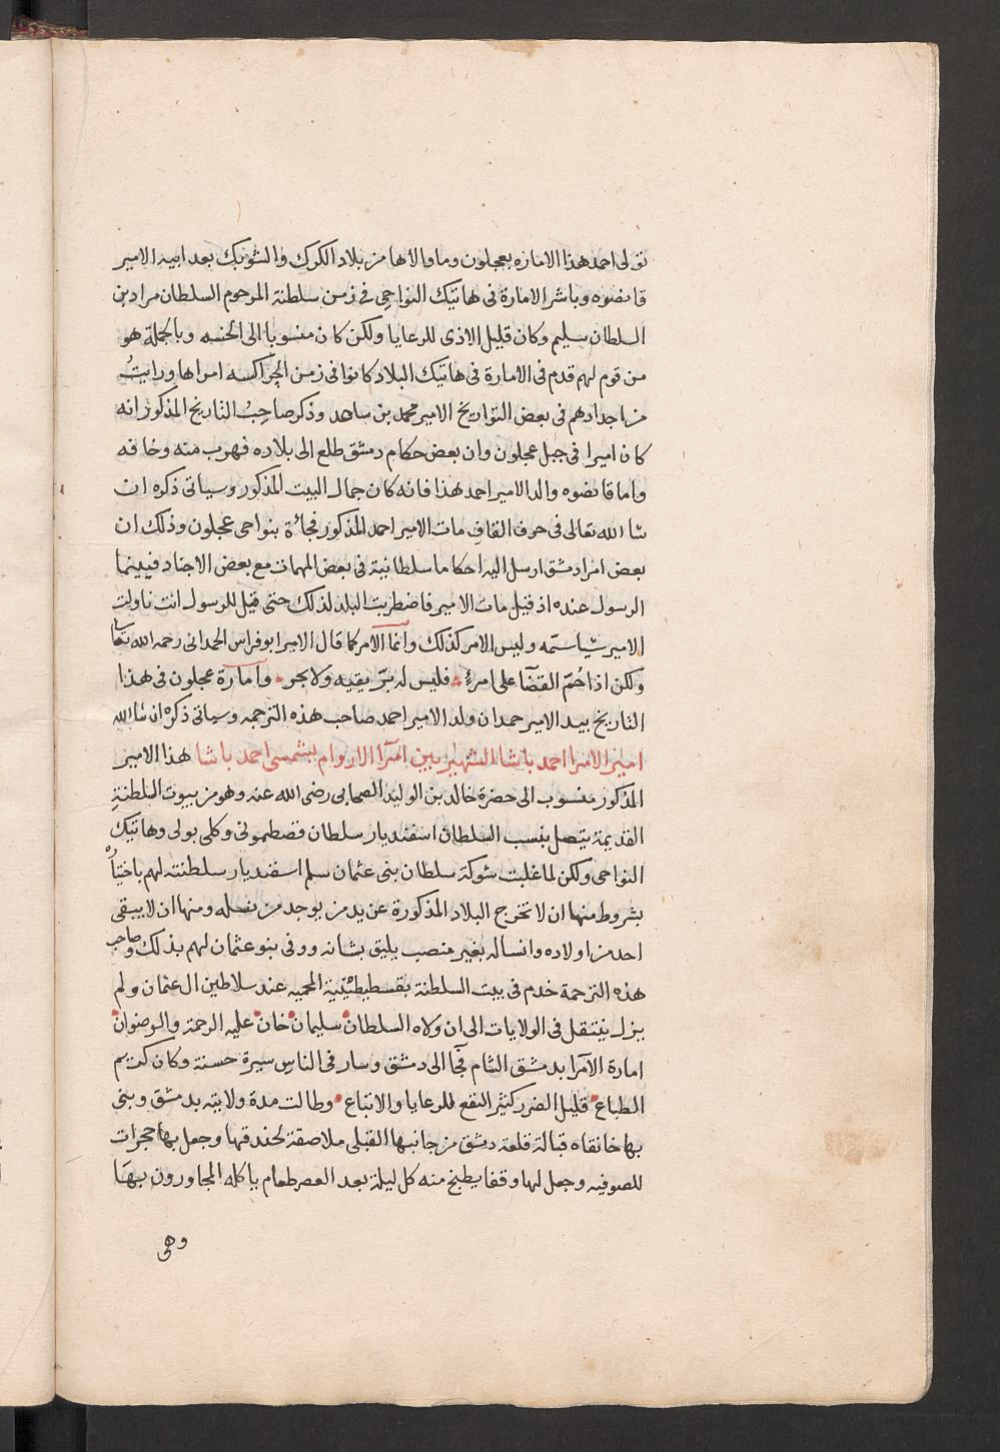 تولى احمد هذا الامارة بعجلون وما والاها من بلاد الكرك والشوبك بعد ابيه الامير
قانصوه وباشر الامارة في هاتيك النواحي في زمن سلطنة المرحوم السلطان مراد بن
السلطان سليم وكان قليل الاذى للرعايا ولكن كان منسوبا الى الخسه وبالجملة هو
من قوم لهم قدم في الامارة في هاتيك البلاد كانوا في زمن الجراكسه امراها ورايتُ
من اجدادهم في بعض التواريخ الامير محمد بن ساعد وذكر صاحبُ التاريخ المذكور انه
كان اميرا في جبل عجلون وان بعض حكام دمشق طلع الى بلاده فهرب منه وخافه
واما قانصوه والد الامير احمد هذا فانه كان جمال البيت المذكور وسياتى ذكره ان
شا الله تعالى في حرف القاف مات الامير احمد المذكور فجاءة بنواحى عجلون وذلك ان
بعض امرا دمشق ارسل اليه احكاما سلطانية في بعض المهمات مع بعض الاجناد فبينما
الرسول عنده اذ قيل مات الامير فاضطربت البلد لذلك حتى قيل للرسول انت ناولت
الامير شيا سمّه وليس الامر كذلك وانما الامر كما قال الامير ابو فراس الحمدانى رحمه الله تعا
ولكن اذا حُمّ القضا على امرئ فليس له برّ يقيه ولا بحر وامارة عجلون في هذا
التاريخ بيد الامير حمدان ولد الامير احمد صاحب هذه الترجمه وسياتى ذكره ان شا الله
امير الامرا احمد باشا الشهير بين امرا الاروام بشمسى احمد باشا هذا الامير
المذكور منسوب الى حضرة خالد بن الوليد الصحابى رضى الله عنه وهو من بيوت السلطنة
القديمة يتصل بنسب السلطان اسفنديار سلطان قصطمونى وكلى بولى وهاتيك
النواحى ولكن لما غلبت شوكة سلطان بنى عثمان سلم اسفنديار سلطنته لهم باختياره
بشروط منها ان لا تخرج البلاد المذكورة عن يد من يوجد من نسله ومنها ان لا يبقى
احد من اولاده وانساله بغير منصب يليق بشانه ووفى بنو عثمان لهم بذلك وصاحب
هذه الترجمة خدم في بيت السلطنة بقسطنطينية المحميه عند سلاطين ال عثمان ولم
يزل ينتقل في الولايات الى ان ولاه السلطان سليمان خان عليه الرحمة والرضوان
امارة الامرا بدمشق الشام فجا الى دمشق وسار في الناس سيرة حسنة وكان كريم
الطباع قليل الضرر كثير النفع للرعايا والاتباع وطالت مدة ولايته بدمشق وبنى
بها خانقاه قبالة قلعة دمشق من جانبها القبلى ملاصقة لخندقها وجعل بها حجرات
للصوفيه وجعل لها وقفا يطبخ منه كل ليلة بعد العصر طعام ياكله المجاورون بها
وهى